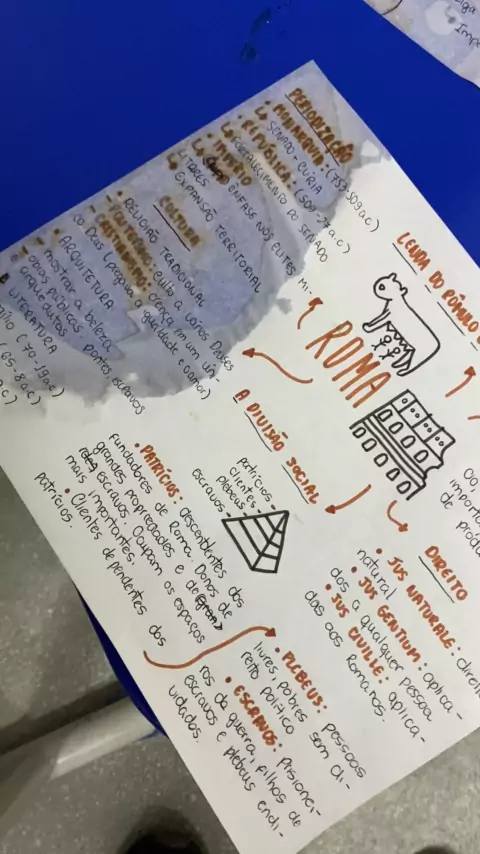 PERIODIZAÇÃO
• MONARQUIA: (753-509 a.C)
↳ SENADO - CÚRIA
• REPÚBLICA: (509-27 a.C)
↳ FORTALECIMENTO DO SENADO
• IMPÉRIO
↳ ÊNFASE NOS ELITES MI-
LITARES
↳ EXPANSÃO TERRITORIAL
CULTURA
• RELIGIÃO TRADICIONAL
culto a vários Deuses
- CRISTIANISMO: crença em um ún-
co Deus (propõe a igualdade e o amor)
• ARQUITETURA
mostrar a beleza
obras públicas pontes, escravos
aquedutos
LITERATURA
(70-19 a.C)
(65-8 a.C)
a.C)
LENDA DO RÔMULO
ROMA
A DIVISÃO SOCIAL
patrícios
clientes
plebeus
escravos
• PATRÍCIOS: descendentes dos
fundadores de Roma. Donos de
grandes propriedades e de
escravos. Ocupam os espaços
mais importantes.
• Clientes dependentes dos
patrícios.
• PLEBEUS: pessoas
livres, pobres sem di-
reito político
• ESCRAVOS: Prisionei-
ros da guerra, filhos de
escravos e plebeus endi-
vidados.
DIREITO
• JUS NATURALE: direi
natural
• JUS GENTIUM: aplica-
dos a qualquer pessoa
• JUS CIVILLE: aplica-
das aos Romanos.
import
de prod
Impe